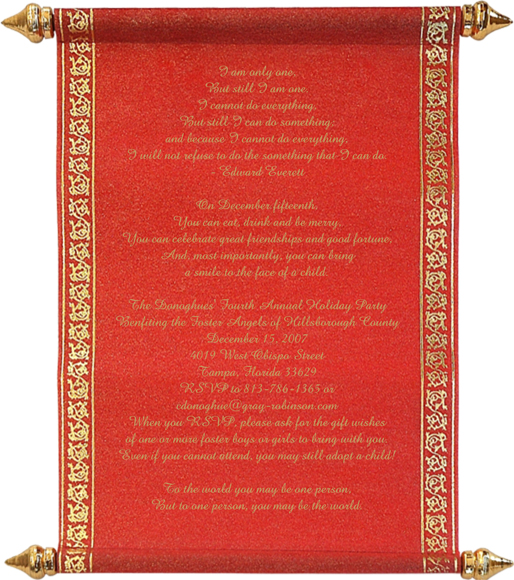 I am only one,
But still I am one.
I cannot do everything,
But still I can do something;
and because I cannot do everything,
I will not refuse to do the something that I can do.
- Edward Everett
On December fifteenth,
You can eat, drink and be merry.
You can celebrate great friendships and good fortune.
And, most importantly, you can bring
a smile to the face of a child.
The Donoghues' Fourth Annual Holiday Party
Benfiting the Foster Angels of Hillsborough County
December 15, 2007
4019 West Obispo Street
Tampa, Florida 33629
RSVP to 813-786-1365 or
cdonoghue@gray-robinson.com
When you RSVP, please ask for the gift wishes
of one or more foster boys or girls to bring with you.
Even if you cannot attend, you may still adopt a child!
To the world you may be one person,
But to one person, you may be the world.